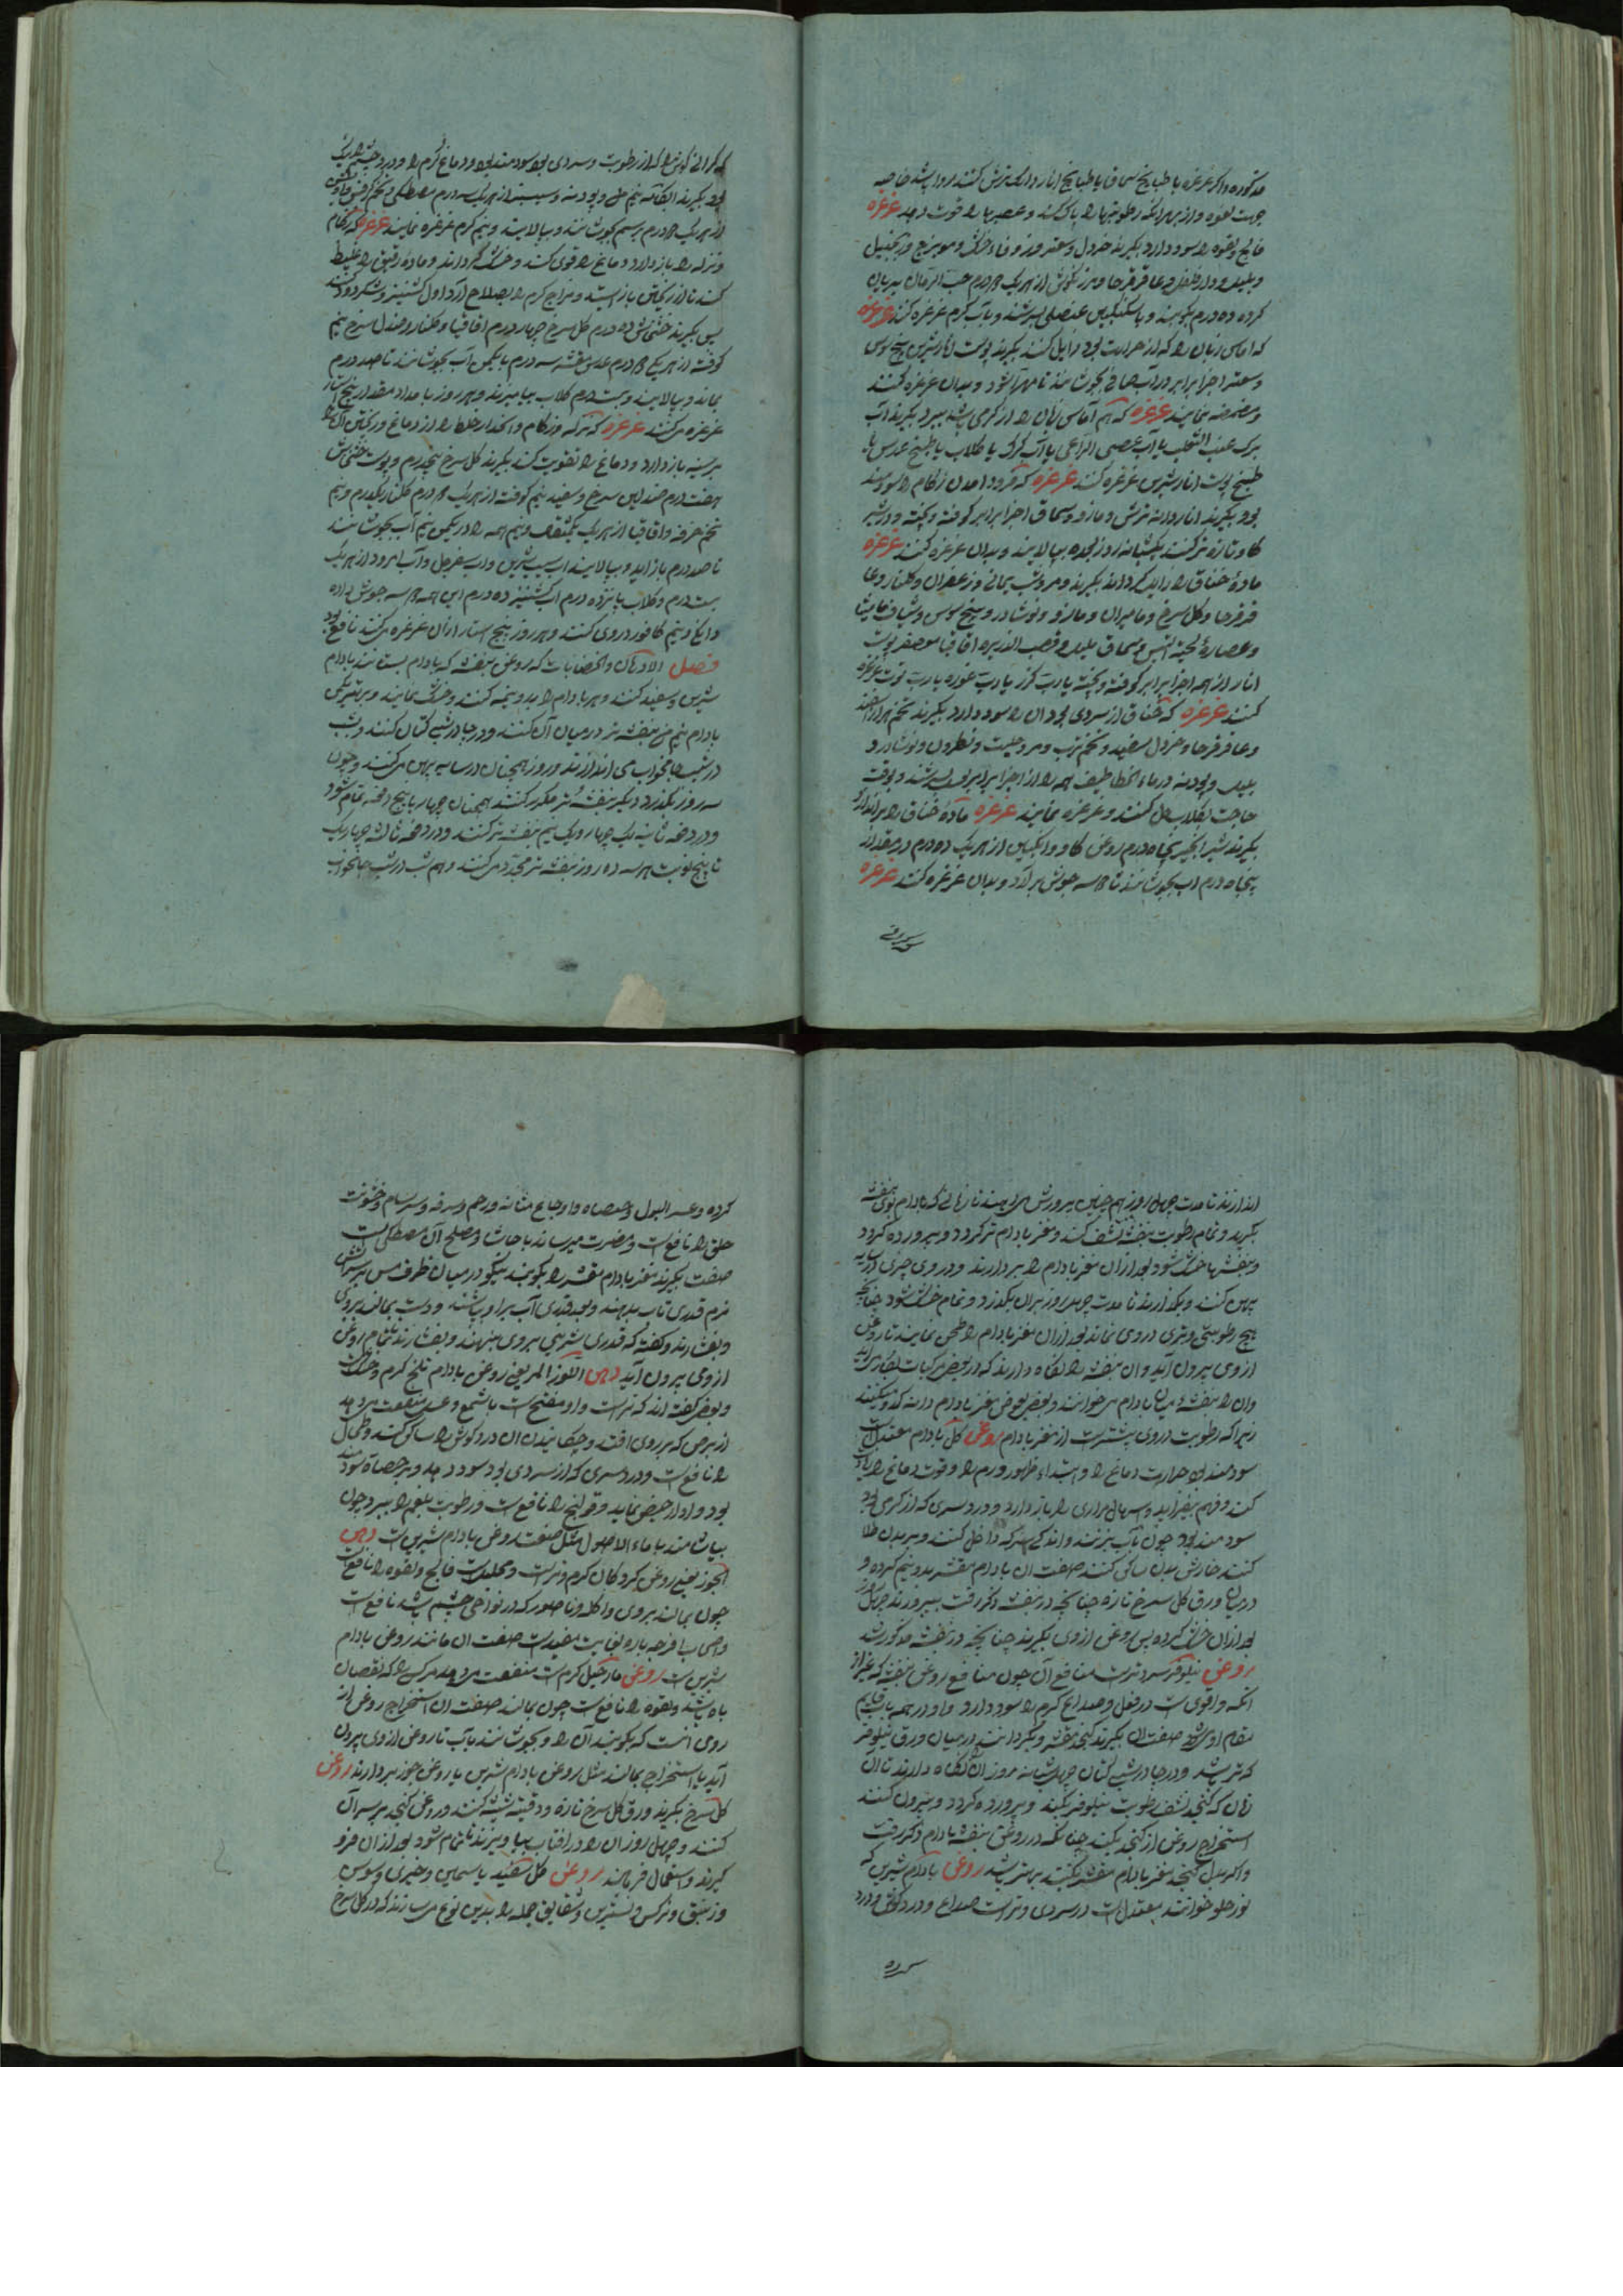 مذکوره و اگر غرغره با طبایخ سماق یا طبایخ انار دانک ترش کنند روا باشد خاصه
جهت لقوه و از بهر آنکه رطوبتها را پاک کند و عصبها را قوت دهد غرغره
فالج و لقوه را سود دارد بگیرند خردل و سعتر و زوفاء خشک و مویزج و زنجبیل
و پلپل و دارفلفل و عاقرقرحا و مرزنکوش از هر یک درم حب الرمان بریان
کرده ده درم بکوبند و با سکنکبین عنصلی بسرشند و بآب کرم غرغره کنند غرغره
که اماس زبان را که از حرارت بود زایل کند بگیرند پوست انار شیرین بیخ سوس
و سعتر اجزا برابر در آب صافی بجوشانند تا مهرا شود و بدان غرغره کنند
و مضمضه نمایند غرغره که هم آماس زبان را از گرمی باشد ببرد بگیرند آب
برک عنب الثعلب یا آب عصی الراعی یا آب کرک یا کلاب یا طبیخ عدس یا
طبیخ پوست انار شیرین غرغره کنند غرغره که فرود آمدن زکام را سودمند
بود بگیرند اناردانه ترش و مازو و سماق اجزا برابر کوفته و بیخته و در شیر
کاو تازه تر کنند یکشبانه روز بعده بپالایند و بدان غرغره کنند غرغره
مادۀ خناق را زایل گرداند بگیرند مر و شب یمانی و زعفران و کلنار و عا
قرقرحا و کل سرخ و مامیران و مازو و نوشادر و بیخ سوس و شیاف مامیثا
و عصارۀ لحیة التیس و سماق پلپل و قصب الذریره اقاقیا معصفر پوست
انار از همه اجزا برابر کوفته و بیخته با رب کرز یا رب غوره یا رب توت غرغره
کنند غرغره که خناق از سردی بود آن را سود دارد بگیرند تخم هزار اسپند
و عاقرقرحا و خردل سفید و تخم ترب و مر و حلتیت و نطرون و نوشادر و
پلپل و پودنه و رماد الخطاطیف همه را از اجزا برابر بعسل بسرشند و بوقت
حاجت بکلاب حل کنند و غرغره نمایند غرغره مادۀ خناق را براندازد
بگیرند شیر انجیر پنجاه درم روغن کاو و انکبین از هر یک ده درم در مقدار
پنجاه درم آب بجوشانند تا سه جوش برآرد و بدان غرغره کنند غرغره
که کرانی کوش را که از رطوبت و سردی بود سودمند بود و دماغ کرم را و درد چشم را
بود بگیرند آبکامه نیم من و پودنه و سیسنبر از هر یک سه درم مصطکی و تخم کرفس
از هر یک درم برسم بجوشانند و بپالایند و نیم کرم غرغره نمایند غرغره که زکام
و نزله را باز دارد و دماغ را قوی کند و خشک گرداند و مادۀ رقیق را غلیظ
کند تا از ریختن باز ایستد و مزاج کرم را بصلاح آرد اول کشنیز و شکر دود کنند
پس بگیرند خشخاش ده درم کل سرخ چهار درم اقاقیا و کلنار و صندل سرخ نیم
کوفته از هر یکی درم عدس مقشر سه درم با یکمن آب بجوشانند تا صد درم
بماند و بپالایند و بیست درم کلاب بیامیزند و هر روز بامداد مقدار پنج استار
غرغره میکنند غرغره که نزله و زکام و انحدار خلط را از دماغ و ریختن آن را
بر سینه باز دارد و دماغ را تقویت کند بگیرند کل سرخ پنجدرم و پوست خشخاش
هفت درم صندلین سرخ و سفید نیم کوفته از هر یک درم کلنار یکدرم و نیم
تخم خرفه و اقاقیا از هر یک یکمثقال و نیم همه را در یکمن و نیم آب بجوشانند
تا صد درم باز آید و بپالایند آب سیب شیرین و آب سفرجل و آب امرود از هر یک
بیست درم و کلاب پانزده درم آب کشنیز ده درم این همه سه جوش داده
دانگ و نیم کافور در وی کنند و هر روز پنج استار از آن غرغره میکنند نافع بود
فصل الادهان و الخضابات که روغن بنفشه که بادام بستانند بادام
شیرین و سفید کنند و هر بادام را بدو نیمه کنند و خشک نمایند و بر یکمن
بادام نیم من بنفشه تر در میان آن کنند و در جا در شب کتان کنند و بشب
در شب جامخواب می اندازند و روز همچنان در سایه پهن میکنند و چون
سه روز بگذرد دیگر بنفشۀ تر مکرر کنند همچنان چهار یا پنج دفعه تمام شود
و در دفعه ثانیه یک چهار و یک نیم بنفشه تر کنند و در دفعه ثالثه چهاریک
تا پنج نوبت هر سه ده روز بنفشه تر مجدد میکنند و هم شب در شب جامخواب
اندازند تا مدت چهل روز هم چنین پرورش میدهند تا زمانی که بادام بوی بنفشه
بگیرد و تمام رطوبت بنفشه نشف کند و مغز بادام تر گردد و پرورده گردد
و بنفشها خشک شود بعد از آن مغز بادام را بردارند و در روی چیزی در سایه
پهن کنند و بگذارند تا مدت چهل روز بران بگذرد و تمام خشک شود چنانچه
هیچ رطوبتی و تری در وی نماند بعد از آن مغز بادام را طحن نمایند تا روغن
از وی بیرون آید و آن بنفشه را نکاه دارند که در بعض مرکبات بکار می آید
و آن را بنفشۀ میان بادام میخوانند و بعضی بعوض مغز بادام دانه کدو میکنند
زیرا که رطوبت در وی بیشتر است از مغز بادام روغن کل بادام معتدل است
سودمند بود حرارت دماغ را و ابتداء ظهور ورم را و قوت دماغ را زیاده
کند و فهم بیفزاید و اسهال مراری را باز دارد و درد سری که از کرمی بود
سودمند بود چون بآب بزنند و اندکی سرکه داخل کنند و بر بدن طلا
کنند خارش بدن ساکن کند صفت آن بادام مقشر بدو نیم کرده و
در میان ورق کل سرخ تازه چنانچه در بنفشه ذکر رفت بپرورند چهل روز
بعد از آن خشک کرده پس روغن از وی بگیرند چنانچه در بنفشه مذکور شد
روغن نیلوفر سرد و تر است منافع آن چون منافع روغن بنفشه که غیر از
آنکه و اقوی است در فعل و صداع کرم را سود دارد و او در همه باب قایم
مقام اوی شود صفت آن بگیرند کنجد مقشر و بگردانند در میان ورق نیلوفر
که تر باشد و در جا در شب کتان چهل شبانه روز آن نکاه دارند تا آن
زمان که کنجد نشف رطوبت نیلوفر بکند و پرورده گردد و بیرون کنند
استخراج روغن از کنجد بکنند چنانکه در روغن بنفشه بادام ذکر رفت
و اگر بدل کنجد مغز بادام مقشر بکنند بهتر باشد روغن بادام شیرین که
لوز حلو خوانند معتدل است در سردی و تر است صداع و درد کوش و درد
کرده و عسر البول و حصاه و اوجاع مثانه و رحم و سرفه و سرسام و خشونت
حلق را نافع است و مضرت میرساند باحشا و مصلح آن مصطکی است
صفت بگیرند مغز بادام مقشر را بکوبند نیکو در میان ظرف مس بر سر آتش
نرم قدری تاب بدهند و بعد قدری آب بر او بپاشند و دست بمالند بروی
و بفشارند و گفته که قدری شیرینی بروی بنهند و بفشارند تا تمام روغن
از وی بیرون آید دهن اللوز المر یعنی روغن بادام تلخ کرم و خشک است
و بعضی گفته اند که تر است و او مفتح است با شمع و عسل منفعت میدهد
از برص که بر روی افتد و چکانیدن آن درد کوش را ساکن کند و طحال
را نافع است و درد سری که از سردی بود سود دهد و بر حصاه سودمند
بود و ادرار حیض نماید و قولنج را نافع است و رطوبت بلغم را ببرد چون
بیاشامند با ماء الاصول مثل صفت روغن بادام شیرین است دهن
الجوز یعنی روغن کردکان کرم و تر است و محلل است فالج و لقوه را نافع است
چون بمالند بروی و اکله و ناصور که در نواحی چشم باشد نافع است
و اصحاب امزجه بارده بغایت مفید است صفت آن مانند روغن بادام
شیرین است روغن نارجیل کرم است منفعت میدهد هر کس را که نقصان
باه باشد و لقوه را نافع است چون بمالند صفت آن استخراج روغن از
روی آنست که بکوبند آن را و بجوشانند بآب تا روغن از وی بیرون
آید یا استخراج بمالند مثل روغن بادام شیرین یا روغن جوز بردارند روغن
کل سرخ بگیرند ورق کل سرخ تازه و در شیشه کنند و روغن کنجد بر سر آن
کنند و چهل روز آن را در آفتاب بیاویزند تا تمام شود بعد از آن فرو
گیرند و استعمال فرمایند روغن کل سفید یاسمین و خیری و سوسن
و زنبق و نرکس و نسترین و شقایق جمله را بدین نوع میسازند که در کل سرخ